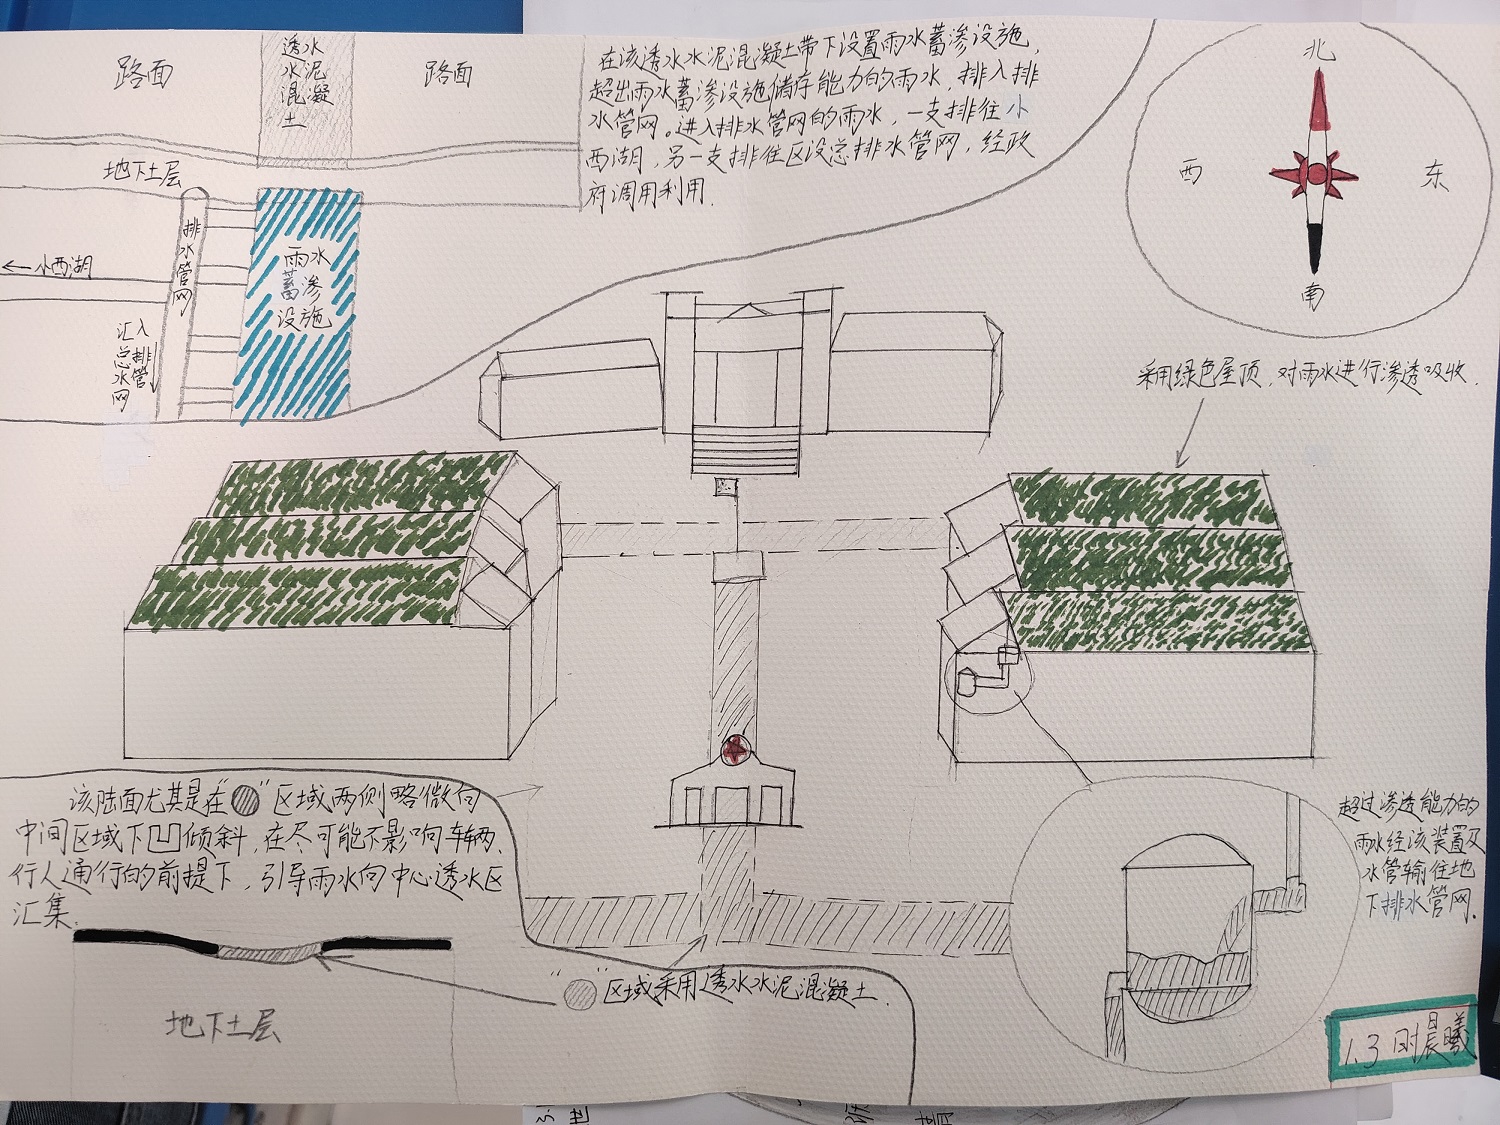 路面
透水
水泥
混凝
土
路面
地下土层
排水管网
雨水
蓄渗
设施
←小西湖
汇入
总排
水管
网
在该透水水泥混凝土带下设置雨水蓄渗设施，
超出雨水蓄渗设施储存能力的雨水，排入排
水管网。进入排水管网的雨水，一支排往小
西湖，另一支排往区没总排水管网，经政
府调用利用.
北
西
东
南
采用绿色屋顶，对雨水进行渗透吸收.
该陆面尤其是在“ ”区域两侧略微向
中间区域下凹倾斜，在尽可能不影响车辆、
行人通行的前提下，引导雨水向中心透水区
汇集.
地下土层
“ ”区域采用透水水泥混凝土.
超过渗透能力的
雨水经该装置及
水管输往地
下排水管网.
1.3 时晨曦